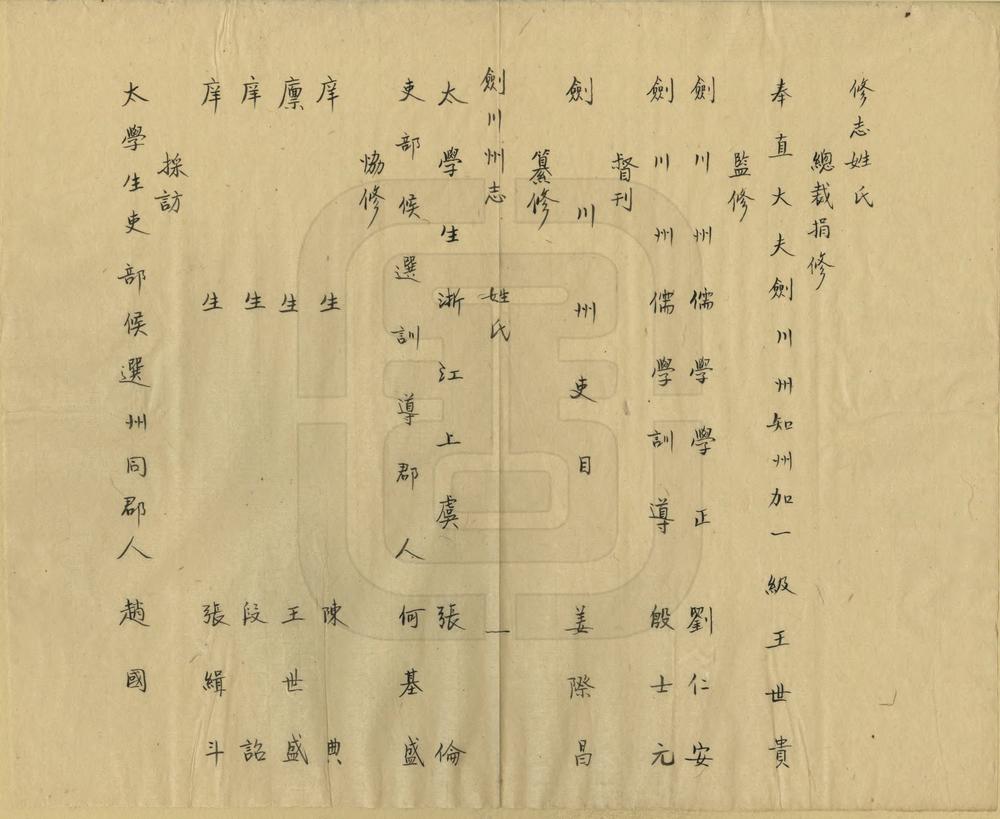 修志姓氏
總裁捐修
奉直大夫劍川州知州加一級王世貴
監修
劍川州儒學學正劉仁安
劍川州儒學訓導殷士元
督刊
劍川州吏目姜際昌
纂修
劍川州志 姓氏 一
太學生浙江上虞張倫
吏部候選訓導郡人何基盛
協修
庠生陳典
廪生王世盛
庠生段詔
庠生張緝斗
採訪
太學生吏部候選州同郡人趙國